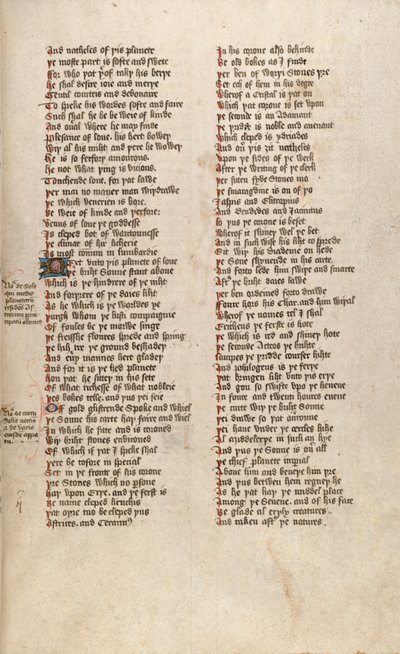 And natheles of þis planete
þe most part is softe and swete
For who þat þerof takþ his berþe
He shal desire ioie and merþe
Gentil courteis and debonaire
To speke his wordes softe and faire
Such shal he be be weie of kinde
And oueral where he may finde
Plesance of loue. his hert boweþ
Wiþ al his miht and þere he woweþ
He is so ferforþ amourous
He not what þing is vicious
Touchende loue. for þat lawe
Þer mai no maner man wiþdrawe
Þe which venerien is bore
Be weie of kinde and þerfore
Venus of loue þe goddesse
Is cleped bot of wantounesse
Þe climat of hir lecherie
Is most comun in lumbardie
Next vnto þis planete of loue
Þe briht Sonne stant aboue
Which is þe hindrere of þe niht
And forþrere of þe daies liht
As he which is þe worldes ye
Þurgh whom þe lusti compaignie
Of foules be þe morwe singe
Þe freisshe floures sprede and springe
Þe hihe tre þe ground beshadeþ
And euery mannes herte gladeþ
And for it is þe hed planete
Hou þat he sitteþ in his sete
Of what richesse of what nobleie
Þes bokes telle. and þus þei seie
Of gold glistrende Spoke and whiel
Þe Sonne his carte haþ faire and wiel
In which he sitt and is coroned
Wiþ briht stones enuironed
Of which if þat I speke shal
Þere be tofore in special
Set in þe front of his corone
Þre Stones which no persone
Haþ vpon Erþe. and þe ferst is
Be name cleped licuchis
Þat oþre tuo be cleped þus
Astrices. and Ceramius
In his corone also behinde
Be olde bokes as I finde
Þer ben of worþi Stones þre
Set ech of hem in his degre
Wherof a Cristal is þat on
Which þat corone is set vpon
Þe seconde is an Adamant
Þe þridde is noble and auenant
Which cleped is ydriades
And ouer þis ȝit natheles
Vpon þe sides of þe werk
After þe writing of þe clerk
Þer sitten fyue Stones mo
Þe smaragdine is on of þo
Iaspis and Elitropius
And Dendides and Iacinctus
Lo þus þe corone is beset
Wherof it shineþ wel þe bet
And in such wise his liht to sprede
Sit wiþ his diademe on hede
Þe Sonne shynende in his carte
And forto lede him swiþe and smarte
After þe briht daies lawe
Þer ben ordeined forto drawe
Foure hors his char. and him wiþal
Wherof þe names tel I shal
Eritheus þe ferste is hote
Þe which is red and shineþ hote
Þe seconde Acteos þe brihte
Lampes þe þridde courser hihte
And philogeus is þe ferþe
Þat bringen liht vnto þis erþe
And gon so swifte vpo þe heuene
In foure and twenti houres euene
Þe carte wiþ þe briht Sonne
Þei drawe so þat ouerronne
Þei haue vnder þe cercles hihe
Al Middelerþe in such an hye
And þus þe Sonne is ouer all
Þe chief planete imperial
Aboue him and beneþe him þre
And þus betwen hem regneþ he
As he þat haþ þe middel place
Among þe Seuene. and of his face
Be glade al erþly creatures
And taken after þe natures